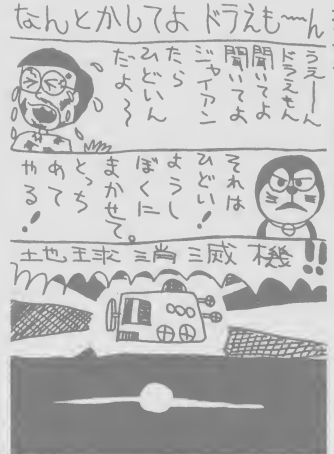 なんとかしてよ ドラえも〜ん
うえーん
ドラえもん
聞いてよ
聞いてよ
ジャイアン
たら
ひどいん
だよ〜
それは
ひどい!
ようし
ぼくに
まかせて。
とっち
めて
やる!
地球消滅機!!